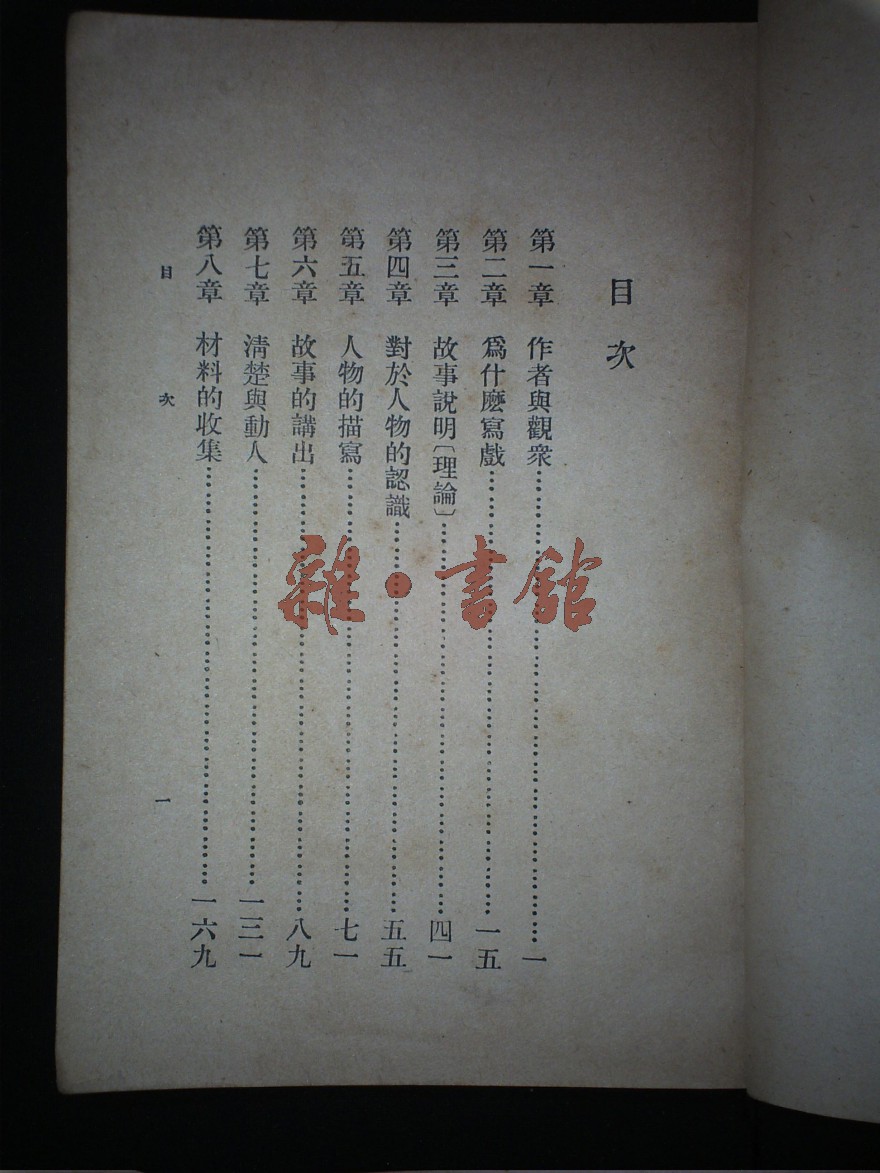 目次
第一章 作者與觀衆……一
第二章 爲什麽寫戲……一五
第三章 故事說明〔理論〕……四一
第四章 對於人物的認識……五五
第五章 人物的描寫……七一
第六章 故事的講出……八九
第七章 清楚與動人……一三一
第八章 材料的收集……一六九
目次 一
雜·書館